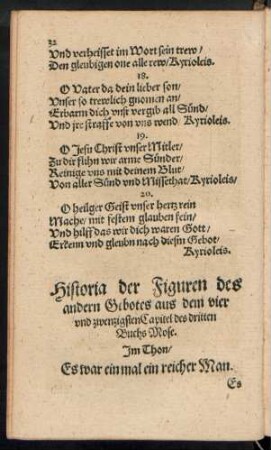 32
Vnd verheisset im Wort sein trew/
Den gleubigen one alle rew/Kyrioleis.
18.
O Vater da dein lieber son/
Vnser so trewlich gnomen an/
Erbarm dich vnsr vergib all Sünd/
Vnd jre straffe von vns wend Kyrioleis.
19.
O Jesu Christ vnser Mitler/
Zu dir fliihn wir arme Sünder/
Reinige vns mit deinem Blut/
Von aller Sünd vnd Missethat/Kyrioleis/
20.
O heilger Geist vnser hertz rein
Mache/ mit festem glauben fein/
Vnd hilff das wir dich waren Gott/
Erkenn vnd gleubn nach diesn Gebot/
Kyrioleis.
Historia der Figuren des
andern Gebotes aus dem vier
vnd zwenzigsten Capitel des dritten
Buchs Mose.
Im Thon/
Es war ein mal ein reicher Man.
Es